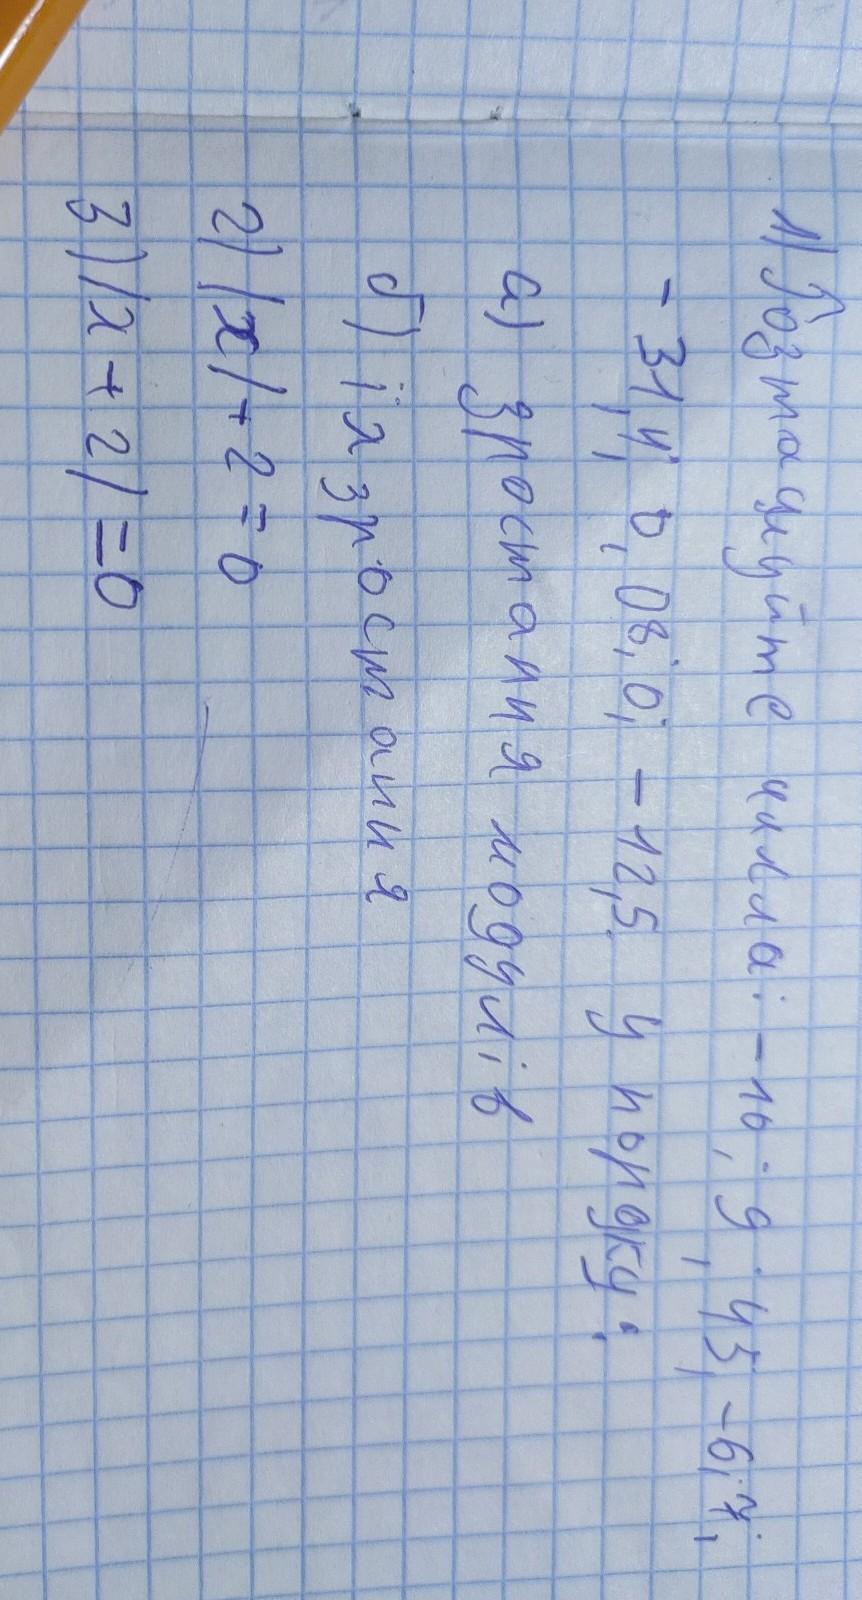 1) Розташуйте числа: -10; 9; 45; -6; 7;
-31,4; 0,08; 0; -12,5 у порядку:
а) зростання модулів
б) їх зростання
2) |x| + 2 = 0
3) |x + 2| = 0